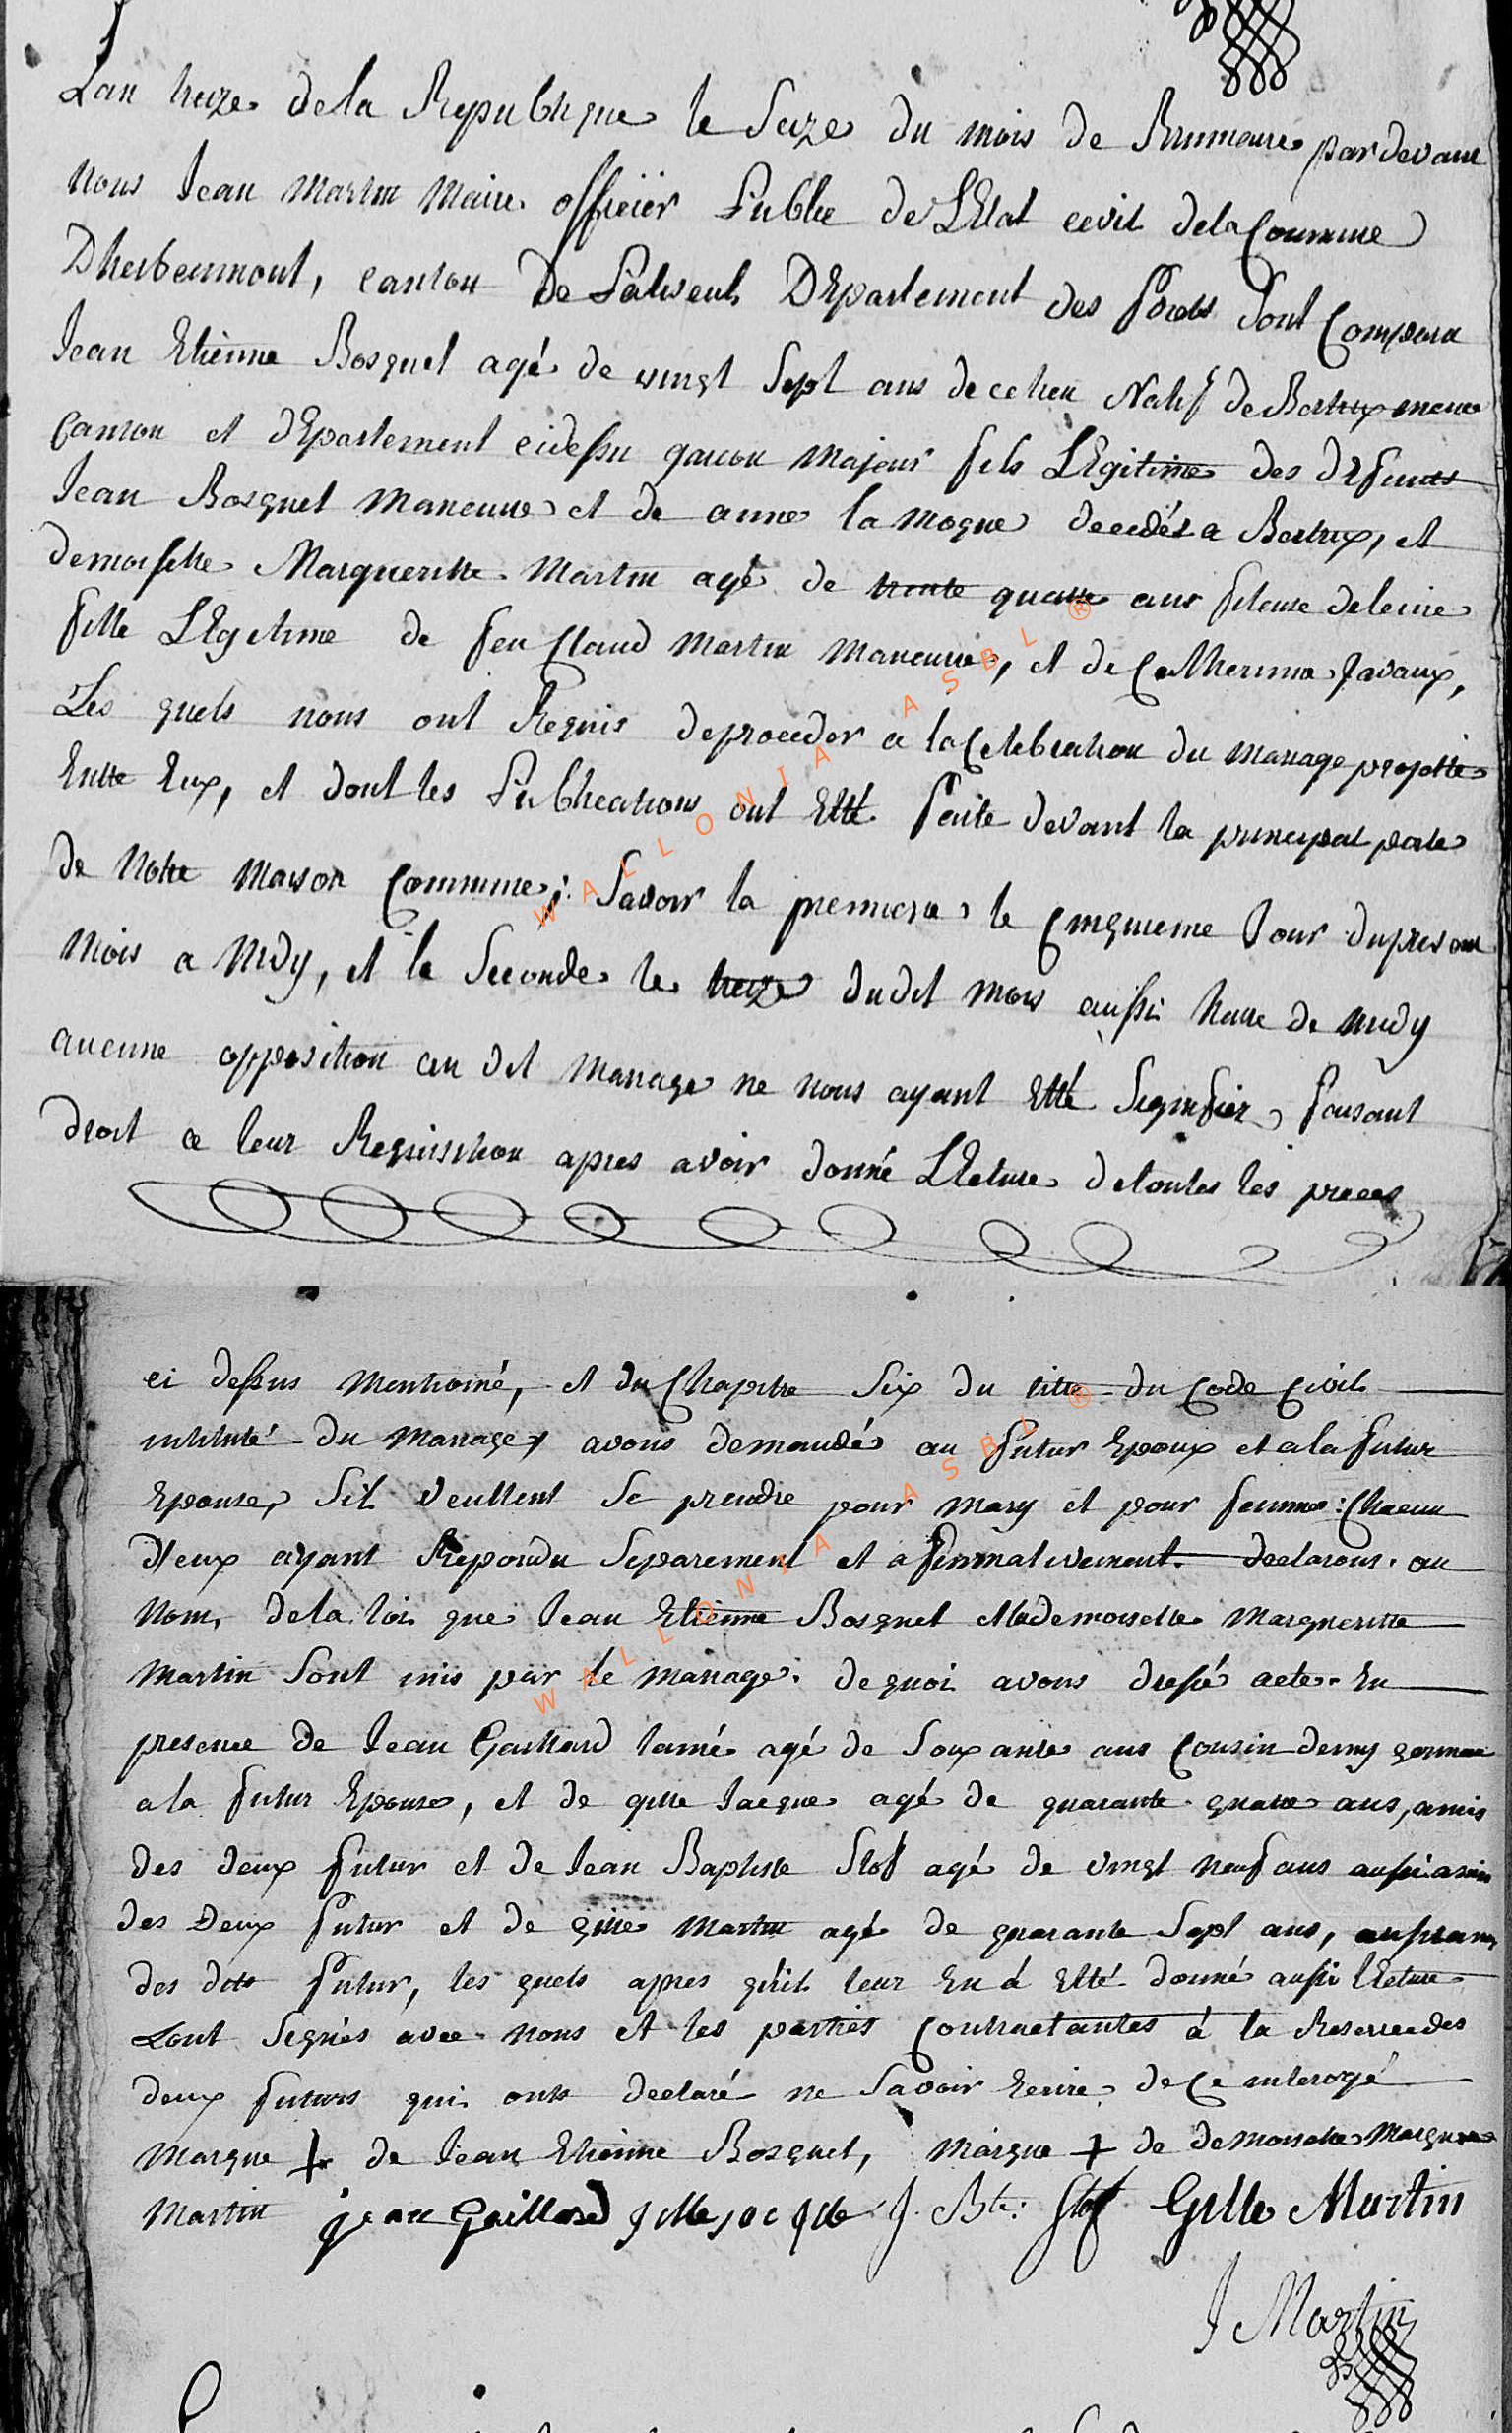 Lan treze de la Republique le Seize du mois de Brumaire pardevant
nous Jean Martin Maire officier Public de LEtat civil de la Commune
Dherbeumont, canton De Paliseul Departement des Forets Sont Comparu
Jean Etienne Bosquet agé de vingt Sept ans de ce lieu Natif de Bertrix meme
Canton et dEpartement cidessu garcon Majeur fils LEgitime des dEfunts
Jean Bosquet Maneuvre et de anne la moque decedés a Bertrix, et
demoiselle Margueritte Martin agé de trente quatre ans fileuse de leine
fille LEgitime de feu Claud Martin Maneuvre, et de Catherinne Javaux,
Les quels nous ont Requis de proceder a la Celebration du mariage projetté
Entre Eux, et dont les Publications ont Etté faite devant la principal porte
de Notre Maison Commune; Savoir la premiere le Cinquieme Jour du present
Mois a Midy, et la Seconde le treize dudit mois aussi heure de midy
aucunne opposition au dit mariage ne nous ayant Etté Signifiez, faisant
droit a leur Requisition apres avoir donné LEcture de toutes les pieces
ci dessus Mentionné, et du Chapitre Six du titre du Code Civil
intitulé du Mariage, avons demandé au futur Epoux et a la futur
Epouse, Sil veullent Se prendre pour mary et pour femme: Chacun
d'eux ayant Repondu Separement et afirmativement declarons au
Nom de la loi que Jean Etienne Bosquet et Mademoiselle Margueritte
Martin Sont unis par le mariage. de quoi avons dressé acte. En
presence de Jean Gaillard lainé agé de Soixante ans Cousin demy germain
a la futur Epouse, et de gille Jacque agé de quarante quatre ans, amis
des deux futur et de Jean Baptiste Slof agé de vingt neuf ans aussi amis
des Deux futur et de gille Martin agé de quarante Sept ans, aussi amis
des dits futur, les quels apres quil leur En á Etté donné aussi lEcture
Lont Signés avec nous et les parties Contractantes á la Reserve des
deux futurs qui onts declaré ne Savoir Ecrire de Ce interogé
Marque + de Jean Etienne Bosquet, Marque + de demoiselle Margueritte
Martin jean Gaillard gille jacque J. Bte: Slof Gille Martin
J Martin
WALLONIA ASBL ®
WALLONIA ASBL ®